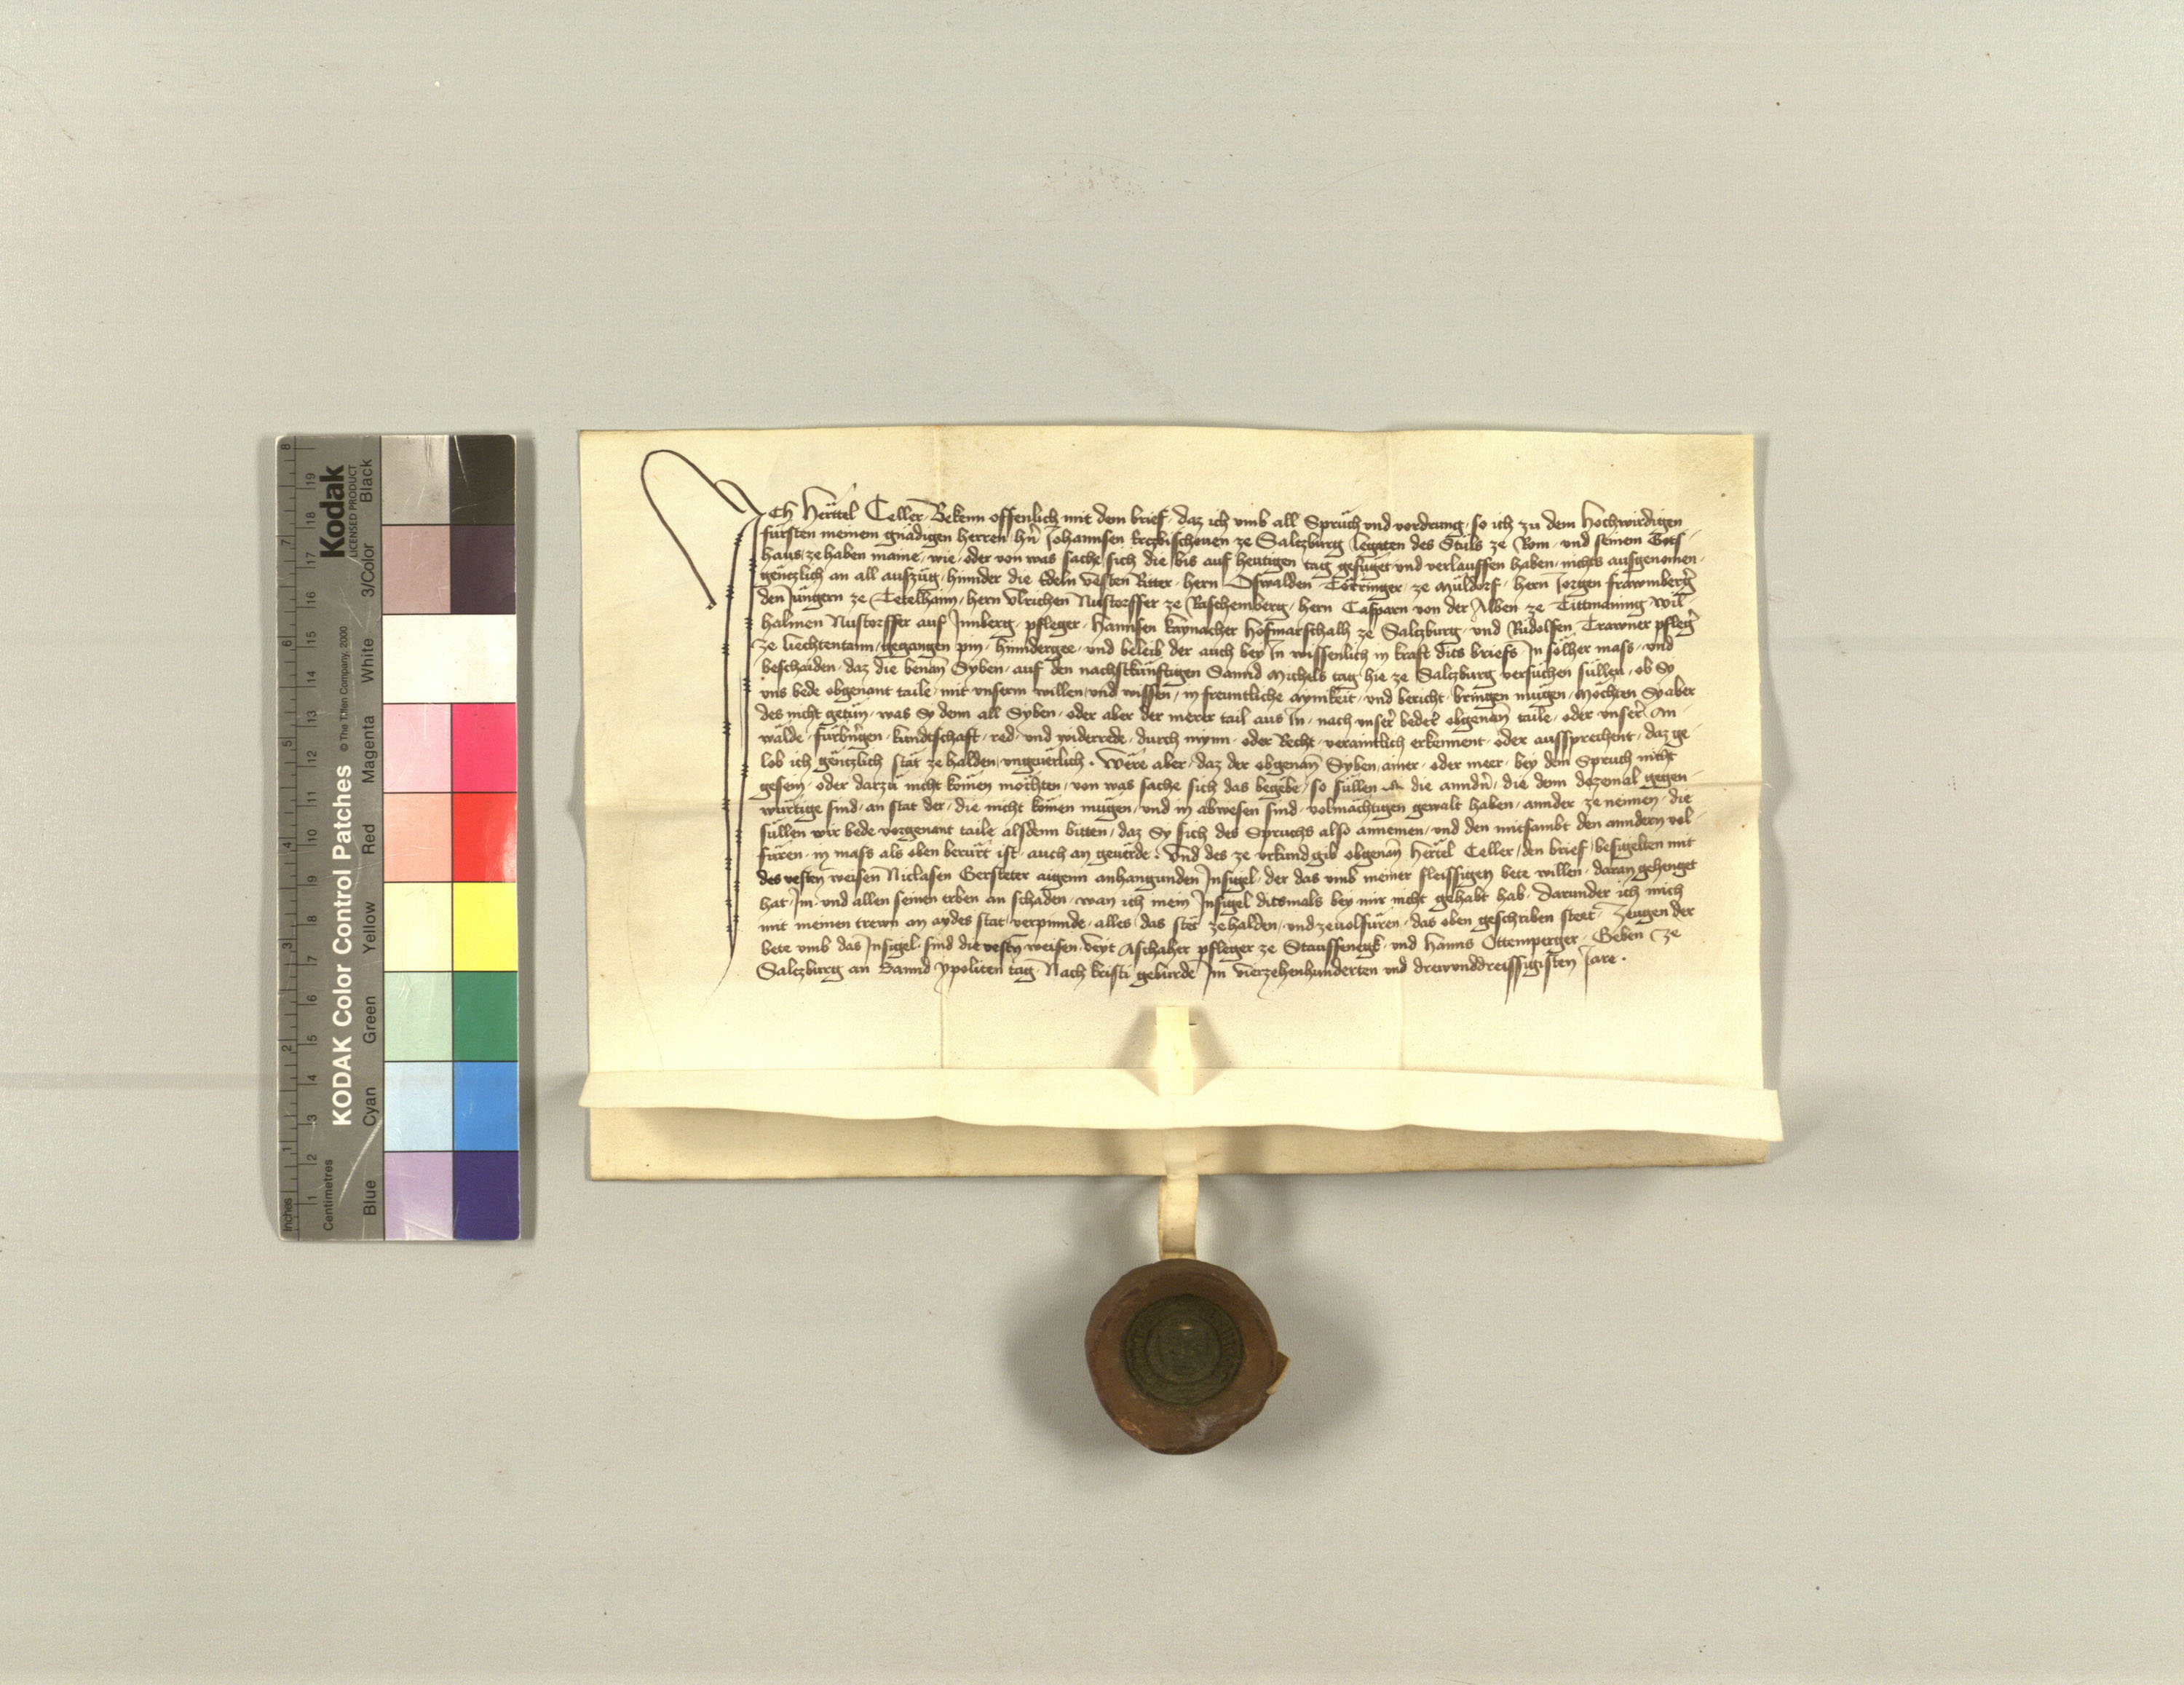 Ich Hërttel Celler Bekenn offenlich mit dem brief daz ich vmb all Sprüch vnd vordrung so ich zu dem Hochwirdigen
fürsten meinem gnädigen herren hn Johannsen Erczbischouen ze Salczburg legaten des Stuls ze Rom vnd seinem Gots
haus ze haben maine wie oder von was sache sich die bis auf hewtigen tag gefüget vnd verlauffen haben nichts ausgenomen
gënczlich an all aufzüg hinnder die Edeln vesten Ritter hern Oswalden Törringer ze Müldorf hern Jorgen frawmberger
den Jüngern ze Tetelhaim hern Vlrichen Nustorffer ze Raschemberg hern Casparn von der Alben ze Tittmaning Wil
halmen Nustorffer auf Innberg pfleger Hannsen kaynacher Hofmarschalh ze Salczburg vnd Rüdolfen Trawner pfleger
ze liechtentann gegangen pin hinndergee vnd beleib der auch bey In wissenlich in kraft dits briefs In sölher mass vnd
beschaiden daz die benan Syben auf den nachstkünftigen Sannd Michels tag hie ze Salczburg versuchen süllen ob Sy
vns bede obgenant taile mit vnserm willen vnd wissen in freuntliche aynikeit vnd bericht bringen mügen Möchten Sy aber
des nicht getün was Sy denn all Syben oder aber der merer tail aus In nach vnser beder obgenan taile oder vnser An
wälde fürbringen kundtschaft red vnd widerrede durch mynn oder Recht veraintlich erkennent oder aussprechent daz ge
lob ich gënczlich stät ze halden vngeuërlich . Wëre aber daz der obgenan Syben ainer oder meer bey dem Spruch nicht
gesein oder darzü nicht komen möchten von was sache sich das begëbe so süllen die anndn die denn dezemal gegen
würtige sind an stat der die nicht komen mügen vnd in abwesen sind volmächtigen gewalt haben annder ze nennen die
süllen wir bede vorgenant taile alsdenn bitten daz Sy sich des Spruchs also annemen vnd den mitsambt den anndern vol
füren in mass als oben berürt ist auch an geuërde . Vnd des ze vrkund gib obgenan Hërtel Celler den brief besigelten mit
des vesten weisen Niclasen Gersteter aigenn anhangunden Insigel der das vmb meiner fleissigen bete willen daran gehenget
hat Im vnd allen seinen erben an schaden wan ich mein Insigel ditsmals bey mir nicht gehabt hab Darunder ich mich
mit meinen trewn an aydes stat verpinnde alles das stët ze halden vnd ze uolfüren das oben geschriben steet Zeugen der
bete vmb das Insigel sind die vesten weisen Veyt Aschaher pfleger ze Stauffenegk vnd Hanns Ottemperger Geben ze
Salczburg an Sannd ypoliten tag Nach kristi geburde Im vierzehenhunderten vnd drewunddreissigisten Jare .
KODAK Color Control Patches
Kodak
LICENSED PRODUCT
© The Tiffen Company, 2000
Centimetres
Inches
Blue Cyan Green Yellow Red Magenta White 3/Color Black
1 2 3 4 5 6 7 8 9 10 11 12 13 14 15 16 17 18 19
1 2 3 4 5 6 7 8